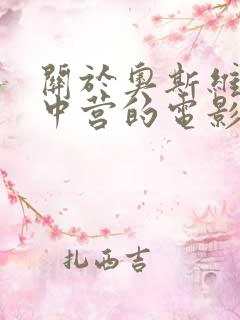 關於奧斯維
中营的电影
扎西吉